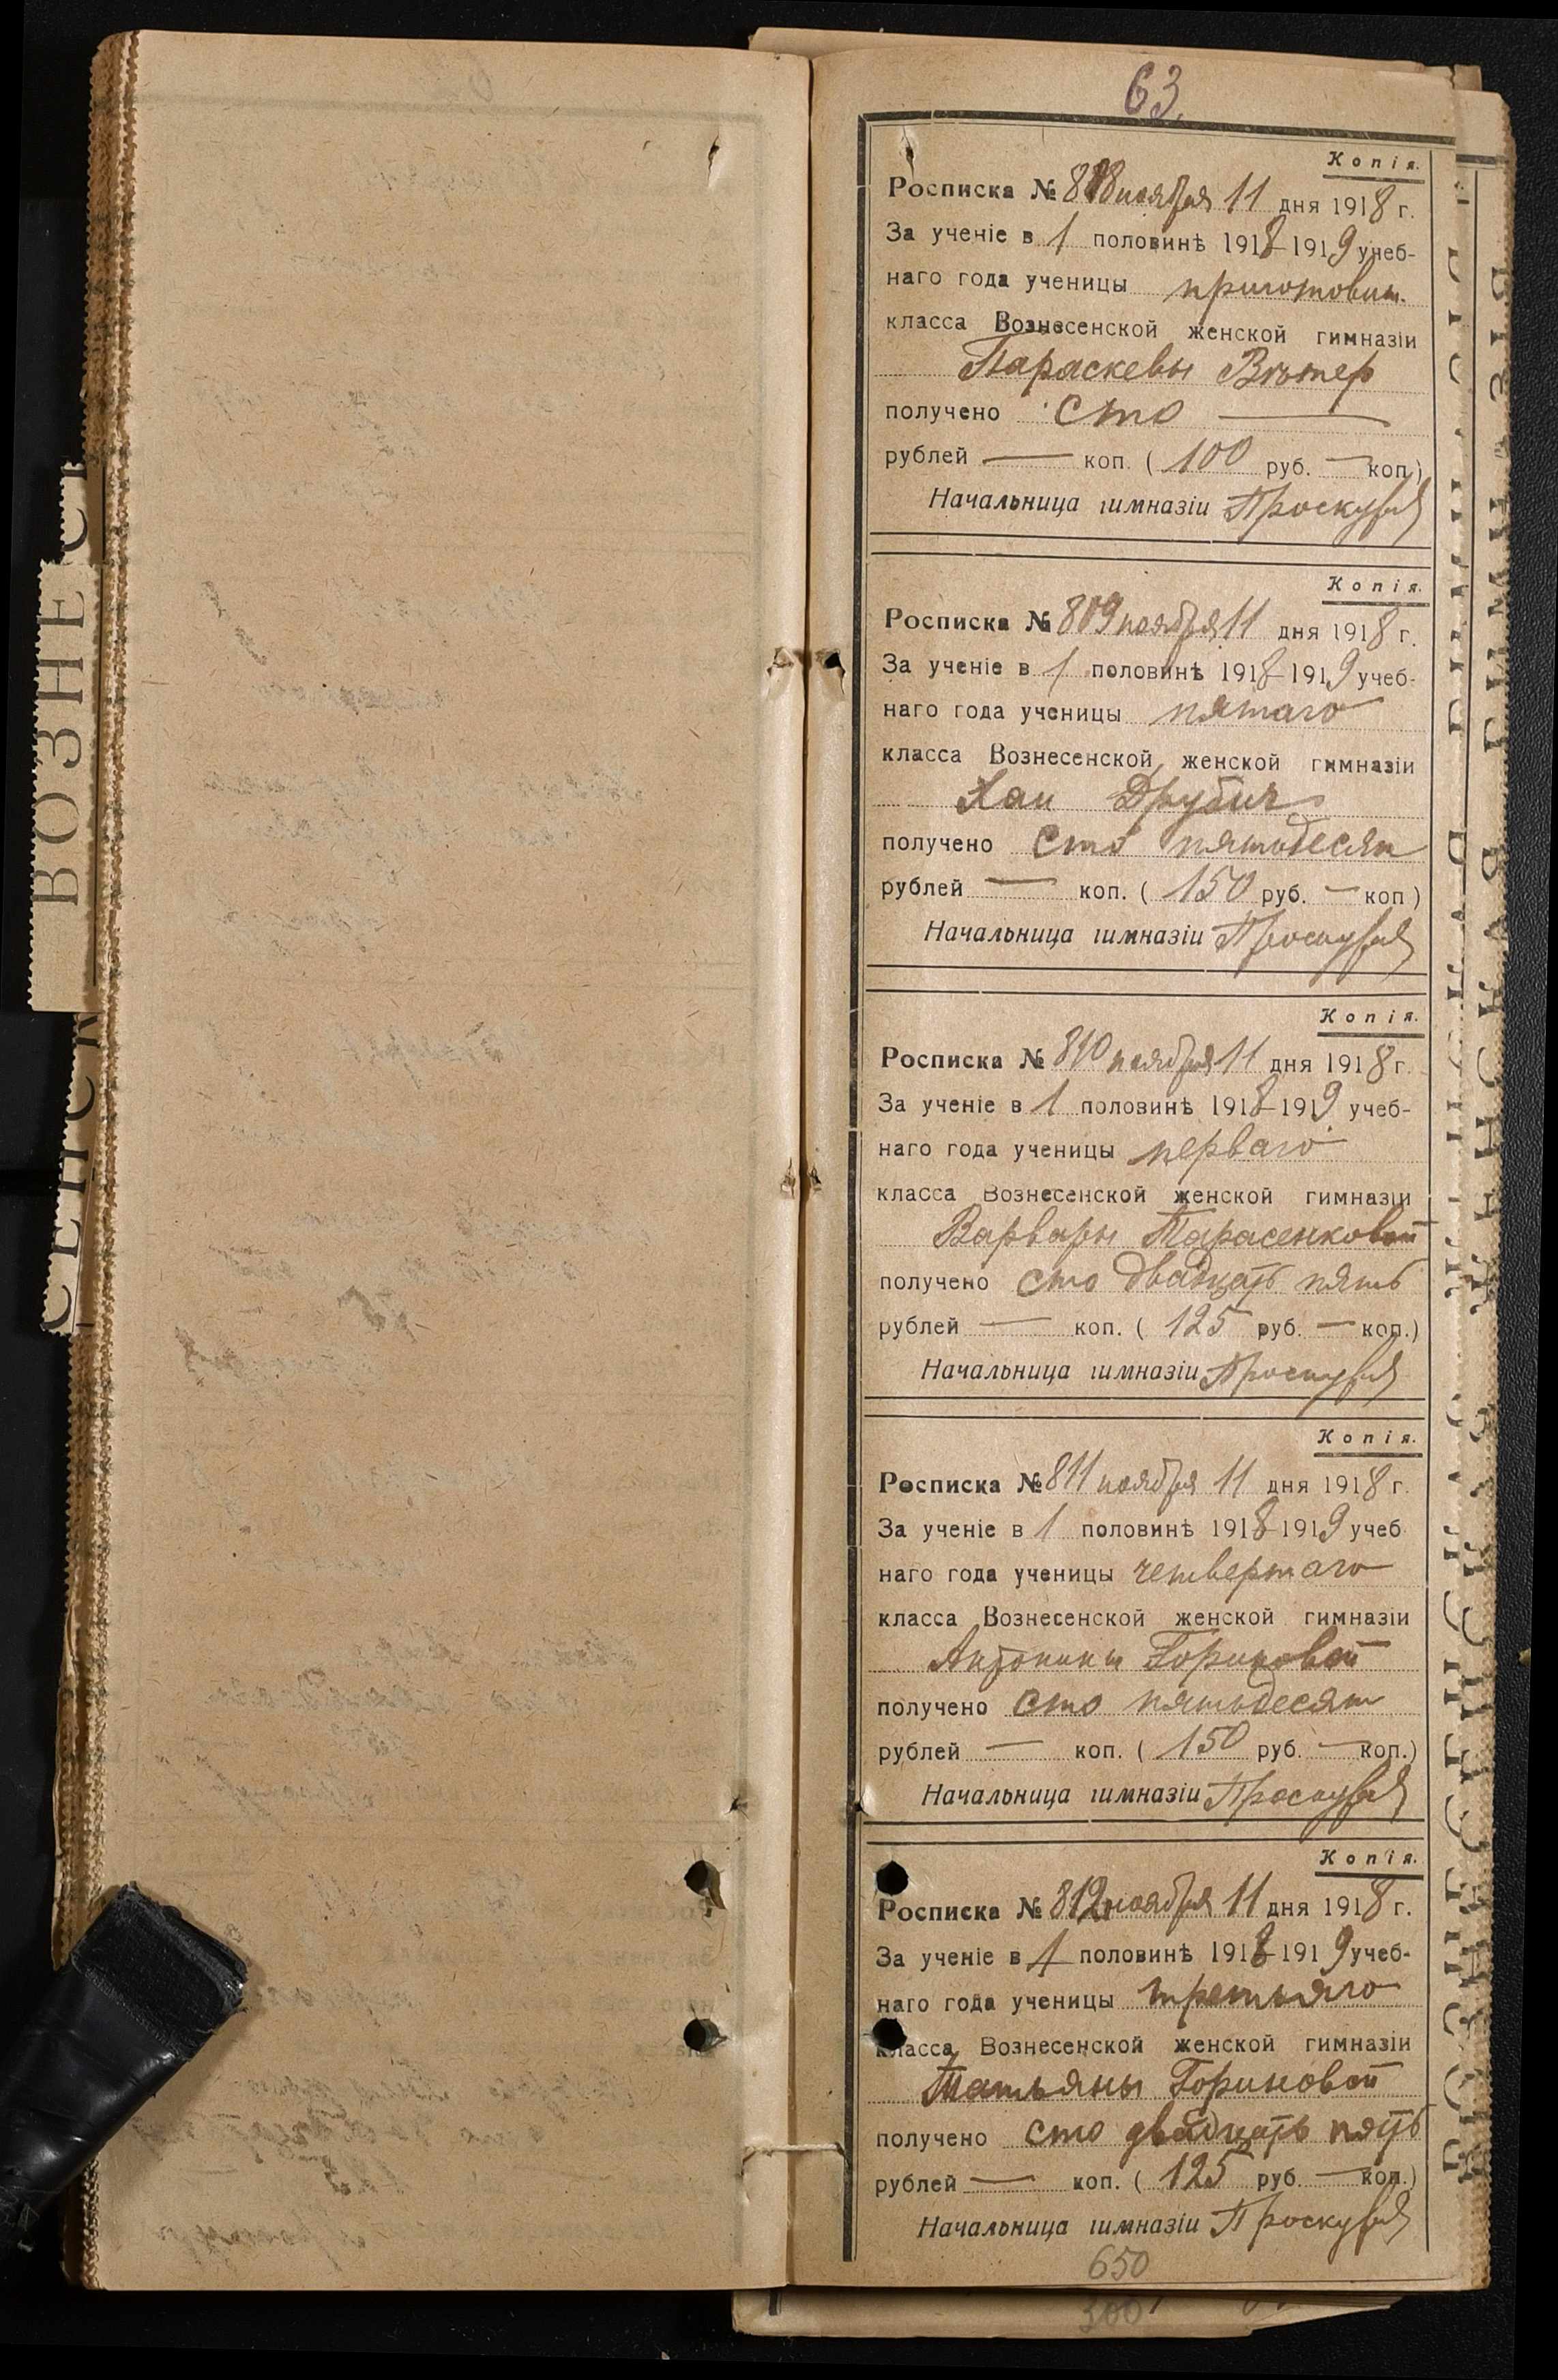 63
Копія.
Росписка № 808 ноября 11 дня 1918 г.
За ученіе в 1 половинѣ 1918–1919 учеб-
наго года ученицы приготовит.
класса Вознесенской женской гимназіи
Параскевы Вѣтер
получено сто —
рублей — коп. ( 100 руб. — коп)
Начальница гимназіи
Копія.
Росписка № 809 ноября 11 дня 1918 г.
За ученіе в 1 половинѣ 1918–1919 учеб-
наго года ученицы пятаго
класса Вознесенской женской гимназіи
Хаи Друбич
получено сто пятьдесят
рублей — коп. ( 150 руб. — коп)
Начальница гимназіи
Копія.
Росписка № 810 ноября 11 дня 1918 г.
За ученіе в 1 половинѣ 1918–1919 учеб-
наго года ученицы перваго
класса Вознесенской женской гимназіи
Варвары Тарасенковой
получено сто двадцать пять
рублей — коп. ( 125 руб. — коп.)
Начальница гимназіи
Копія.
Росписка № 811 ноября 11 дня 1918 г.
За ученіе в 1 половинѣ 1918–1919 учеб
наго года ученицы четвертаго
класса Вознесенской женской гимназіи
Антонины Гориновой
получено сто пятьдесят
рублей — коп. ( 150 руб. — коп.)
Начальница гимназіи
Копія.
Росписка № 812 ноября 11 дня 1918 г.
За ученіе в 1 половинѣ 1918–1919 учеб-
наго года ученицы третьяго
класса Вознесенской женской гимназіи
Татьяны Гориновой
получено сто двадцать пять
рублей — коп. ( 125 руб. — коп.)
Начальница гимназіи
650
300
ВОЗНЕС